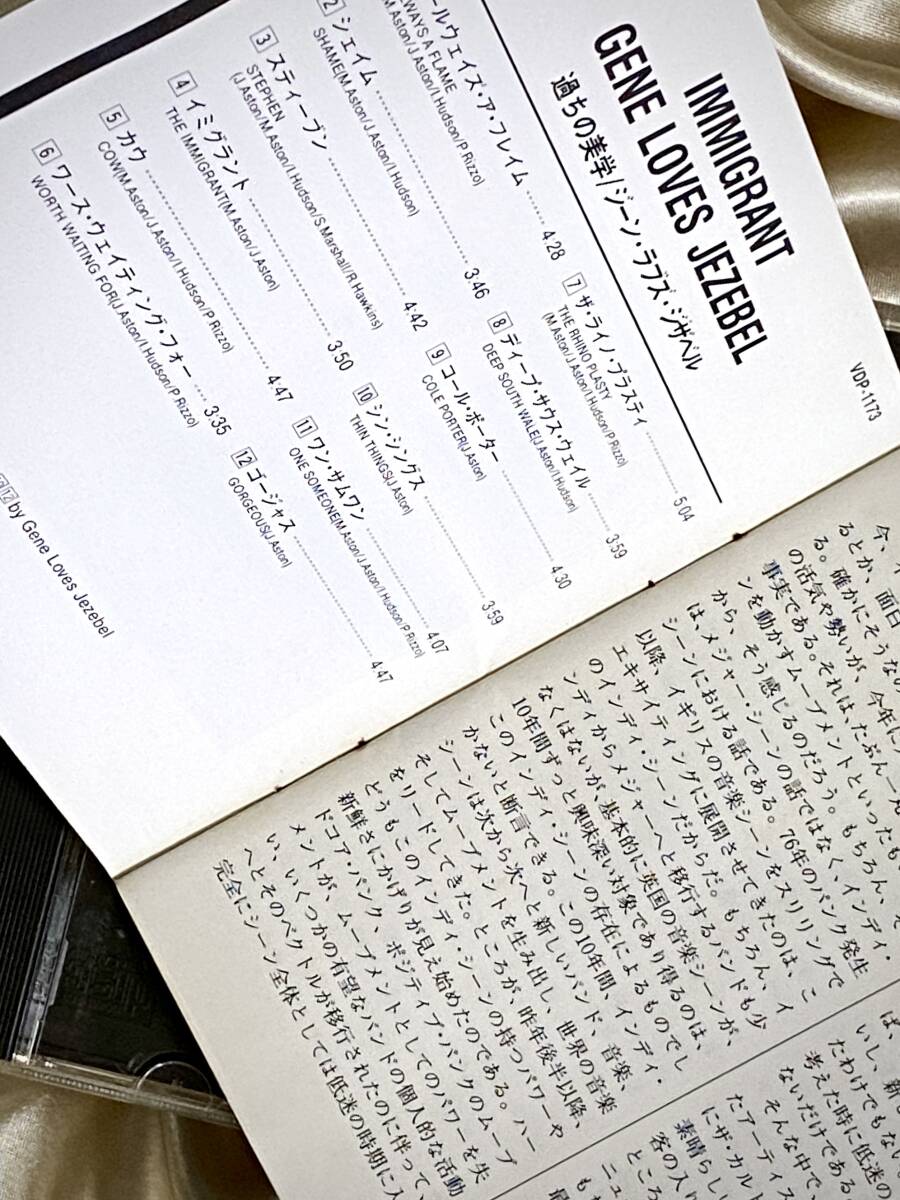 VDP-1173
IMMIGRANT
GENE LOVES JEZEBEL
過ちの美学/ジーン・ラブズ・ジザベル
ールウェイズ・ア・フレイム 4:28
WAYS A FLAME
M.Aston/J.Aston/I.Hudson/P.Rizzo)
2 シェイム 3:46
SHAME(M.Aston/J.Aston/I.Hudson)
3 スティーブン 4:42
STEPHEN
(J.Aston/M.Aston/I.Hudson/S.Marshall/R.Hawkins)
4 イミグラント 3:50
THE IMMIGRANT(M.Aston/J.Aston)
5 カウ 4:47
COW(M.Aston/J.Aston/I.Hudson/P.Rizzo)
6 ワース・ウェイティング・フォー 3:35
WORTH WAITING FOR(J.Aston/I.Hudson/P.Rizzo)
7 ザ・ライノ・プラスティ 5:04
THE RHINO PLASTY
(M.Aston/J.Aston/I.Hudson/P.Rizzo)
8 ディープ・サウス・ウェイル 3:59
DEEP SOUTH WALE(J.Aston/I.Hudson)
9 コール・ポーター 4:30
COLE PORTER(J.Aston)
10 シン・シングス 3:59
THIN THINGS(J.Aston)
11 ワン・サムワン 4:07
ONE SOMEONE(M.Aston/J.Aston/I.Hudson/P.Rizzo)
12 ゴージャス 4:47
GORGEOUS(J.Aston)
12 by Gene Loves Jezebel
今、面白
るとか、
る。確かにそうなの
の活気や勢いが、今年に
事実である。それは、たぶん一
ンを動かすムーブメントといったも
から、そう感じるのだろう。もちろん、そ
は、メジャー・シーンの話ではなく、インディ・
シーンにおける話である。76年のパンク発生
以降、イギリスの音楽シーンをスリリングで
エキサイティングに展開させてきたのは、こ
のインディ・シーンだからだ。もちろん、イ
ンディからメジャーへと移行するバンドも少
なくはないが、基本的に英国の音楽シーンが、
10年間ずっと興味深い対象であり得るのは、
このインディ・シーンの存在によるものでし
かないと断言できる。この10年間、インディ・
シーンは次から次へと新しいバンド、音楽、
そしてムーブメントを生み出し、世界の音楽
をリードしてきた。ところが、昨年後半以降、
どうもこのインディ・シーンの持つパワーや
新鮮さにかげりが見え始めたのである。ハー
ドコア・パンク、ポジティブ・パンクのムーブ
メントが、ムーブメントとしてのパワーを失
い、いくつかの有望なバンドの個人的な活動
へとそのベクトルが移行されたのに伴って、
完全にシーン全体としては低迷の時期に入
ば、
いし、新し
たわけでもない
考えた時に低迷の
ないだけである
そんな中で
たアーティス
にザ・カル
素晴らし
ところ
客の入
ニュ
もた
最